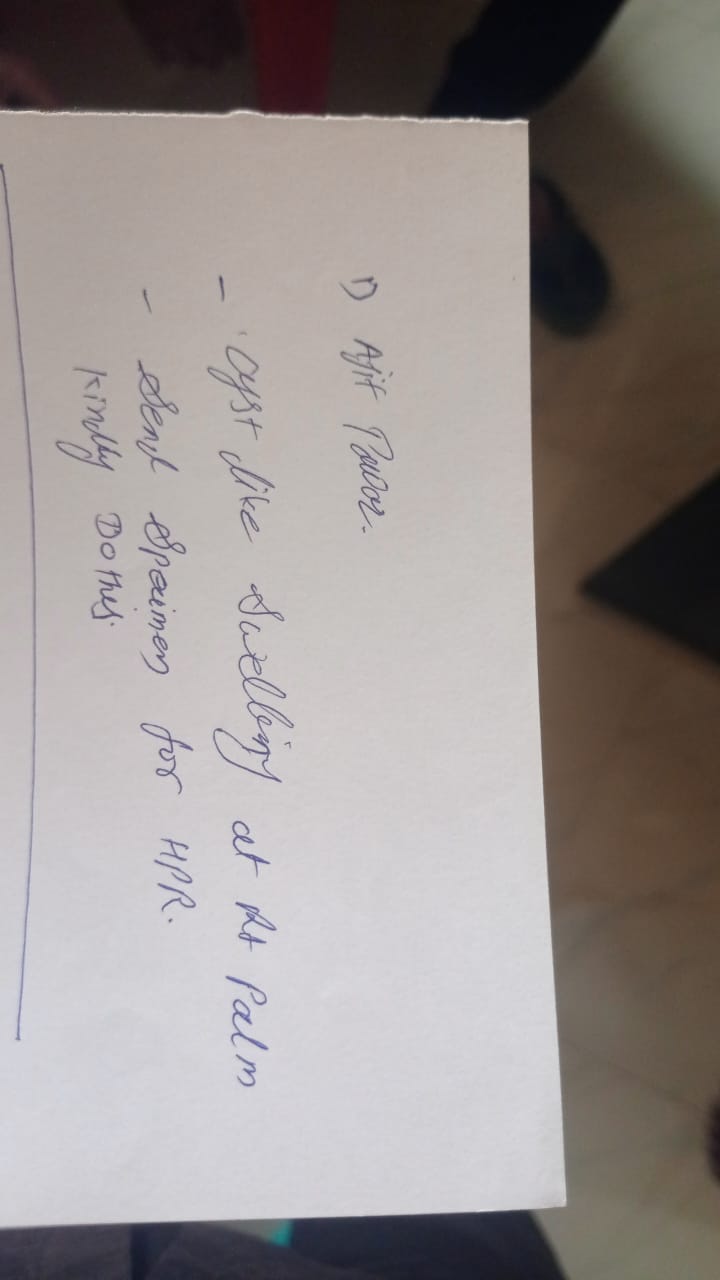 1) Ajit Pawar.
- Cyst like Swelling at Rt Palm
- Send Specimen for HPR.
Kindly Do this.